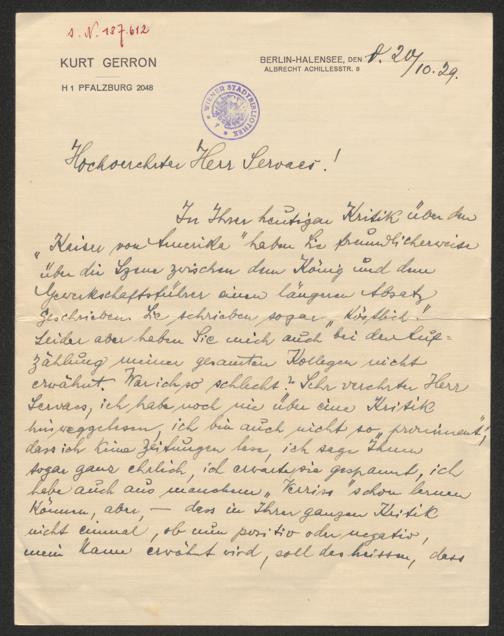 s. N. 187.612
KURT GERRON
H 1 PFALZBURG 2048
BERLIN-HALENSEE, DEN d. 20/10.29.
ALBRECHT ACHILLESSTR. 8
WIENER STADTBIBLIOTHEK
Hochverehrter Herr Servaes!
In Ihrer heutigen Kritik über den
"Kaiser von Amerika" haben Sie freundlicherweise
über die Szene zwischen dem König und dem
Gewerkschaftsführer einen längeren Absatz
geschrieben. Sie schrieben sogar "Köstlich!"
Leider aber haben Sie mich auch bei der Auf=
zählung meiner gesamten Kollegen nicht
erwähnt. War ich so schlecht? Sehr verehrter Herr
Servaes, ich habe noch nie über eine Kritik
hinweggelesen, ich bin auch nicht so "prominent",
dass ich keine Zeitungen lese, ich sage Ihnen
sogar ganz ehrlich, ich erwarte sie gespannt, ich
habe auch aus manchem "Verriss" schon lernen
können, aber, — dass in Ihrer ganzen Kritik
nicht einmal, ob nun positiv oder negativ,
mein Name erwähnt wird, soll das heissen, dass